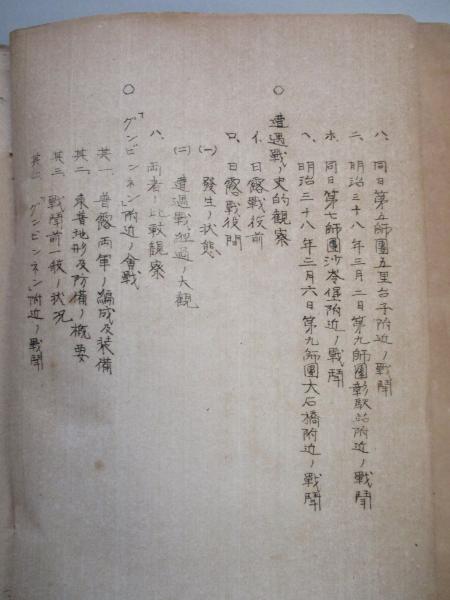 ハ、同日第五師團五里台子附近ノ戰鬪
ニ、明治三十八年三月二日第九師團彰駅站附近ノ戰鬪
ホ、同日第七師團沙岺堡附近ノ戰鬪
ヘ、明治三十八年三月六日第九師團大石橋附近ノ戰鬪
○ 遭遇戰ノ史的觀察
イ、日露戰役前
ロ、日露戰役間
(一) 發生ノ状態
(二) 遭遇戰経過ノ大觀
ハ、両者ノ比較觀察
○ 「グンビンネン」附近ノ會戰
其一 普露両軍ノ編成及装備
其二 東普地形及防備ノ概要
其三 戰鬪前一般ノ状况
「グンビンネン」附近ノ戰鬪